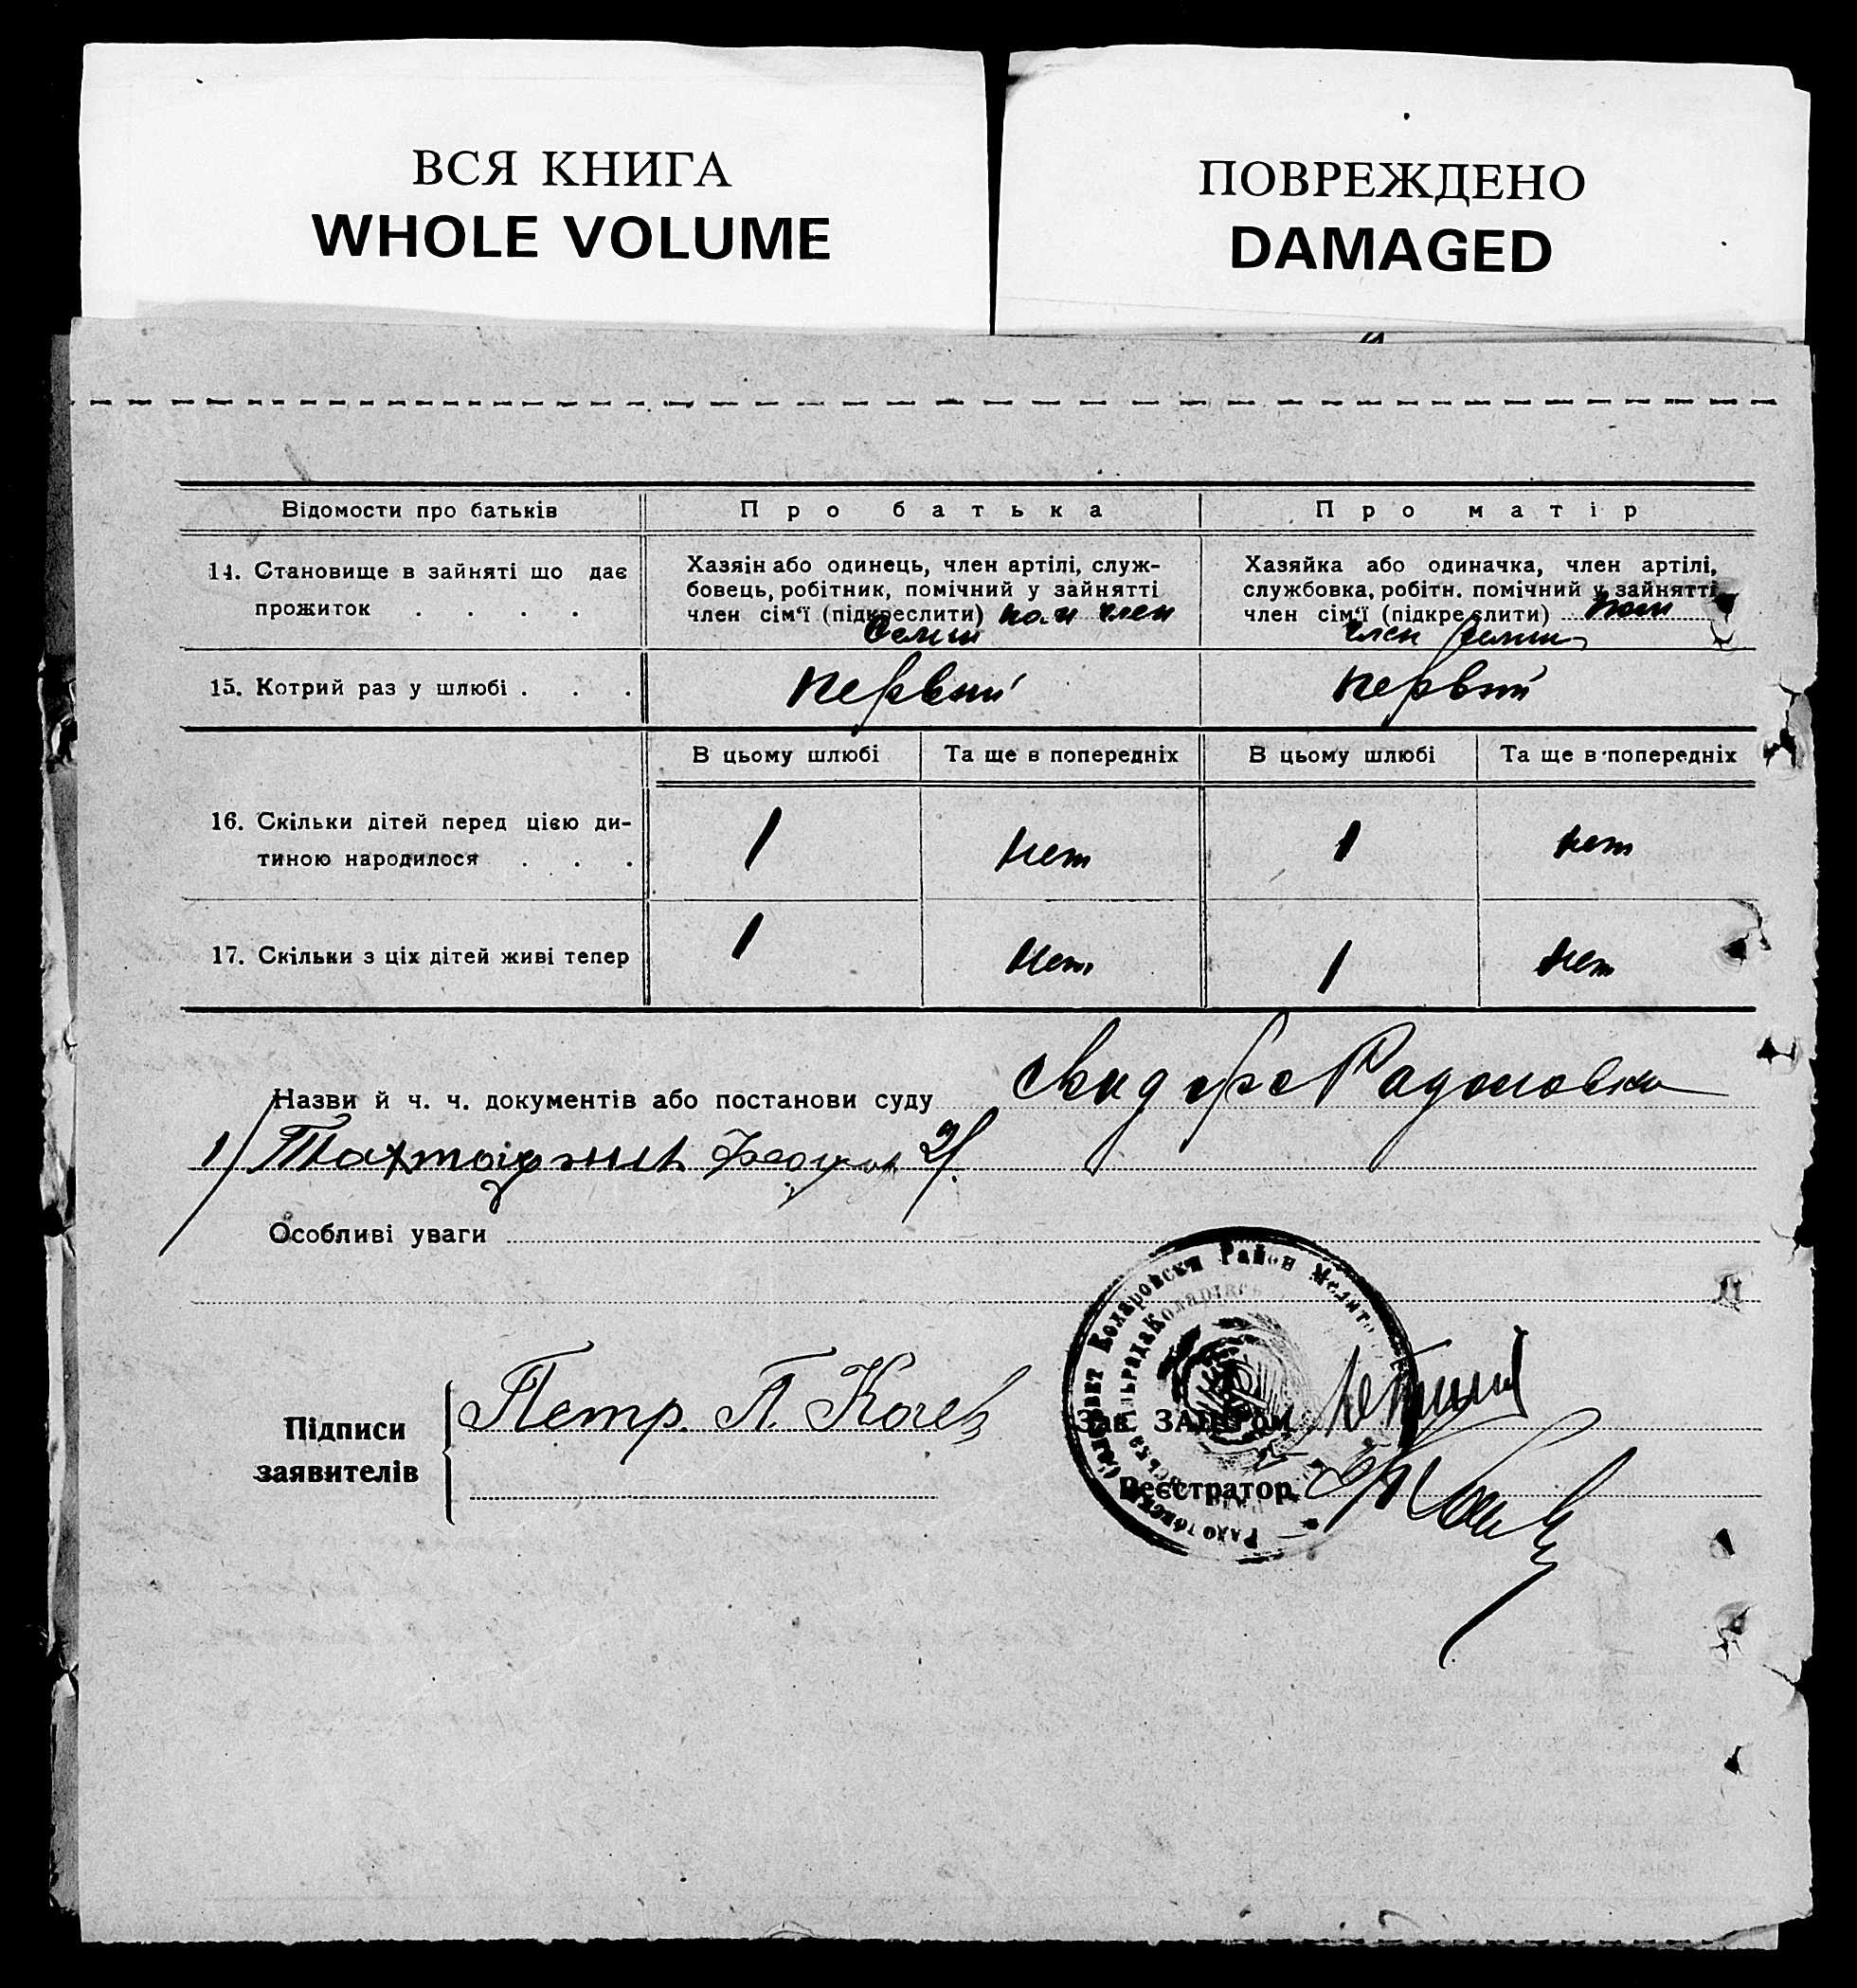 ВСЯ КНИГА
WHOLE VOLUME
ПОВРЕЖДЕНО
DAMAGED
Відомости про батьків
Про батька
Про матір
14. Становище в зайняті що дає
прожиток . . . .
Хазяін або одинець, член артілі, служ-
бовець, робітник, помічний у зайнятті
член сім'ї (підкреслити) пом член
семии
Хазяйка або одиначка, член артілі,
службовка, робітн. помічний у зайнятті
член сім'ї (підкреслити) пом
член семии
15. Котрий раз у шлюбі . . .
первый
первый
В цьому шлюбі
Та ще в попередніх
В цьому шлюбі
Та ще в попередніх
16. Скільки дітей перед цією ди-
тиною народилося . . .
1
нет
1
нет
17. Скільки з ціх дітей живі тепер
1
нет
1
нет
Назви й ч. ч. документів або постанови суду
1/ 2/
Особливі уваги
Коларовски Район Мелит
Підписи
заявителів
Петр. П.
Зав. ЗАГС'ом
Реєстратор